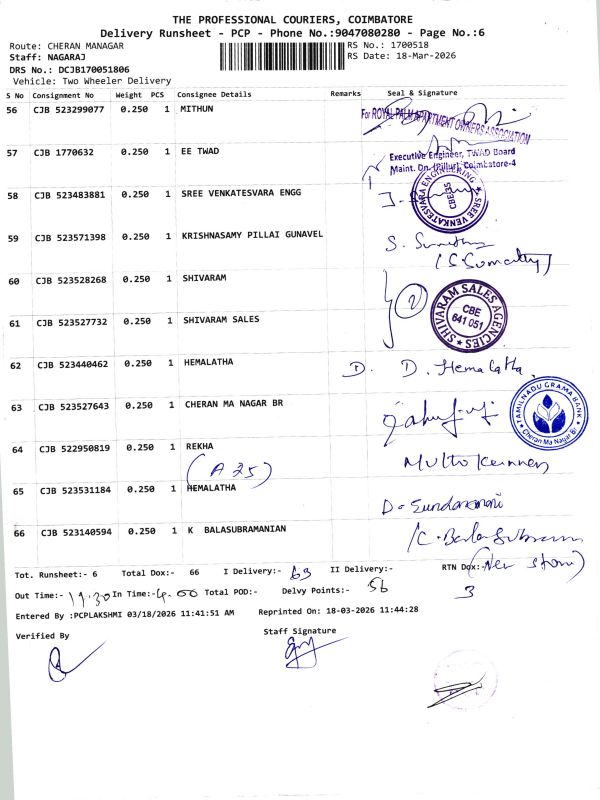 THE PROFESSIONAL COURIERS, COIMBATORE
Delivery Runsheet - PCP - Phone No.:9047080280 - Page No.:6
Route: CHERAN MANAGAR RS No.: 1700518
Staff: NAGARAJ RS Date: 18-Mar-2026
DRS No.: DCJB170051806
Vehicle: Two Wheeler Delivery
S No Consignment No Weight PCS Consignee Details Remarks Seal & Signature
56 CJB 523299077 0.250 1 MITHUN
For ROYAL PALM APARTMENT OWNERS ASSOCIATION
57 CJB 1770632 0.250 1 EE TWAD
Executive Engineer, TWAD Board
Maint. Dn. (Pillur), Coimbatore-4
58 CJB 523483881 0.250 1 SREE VENKATESVARA ENGG
SREE VENKATESVARA ENGINEERING
CBE-35
59 CJB 523571398 0.250 1 KRISHNASAMY PILLAI GUNAVEL
(S. Sumathy)
60 CJB 523528268 0.250 1 SHIVARAM
2
61 CJB 523527732 0.250 1 SHIVARAM SALES
SHIVARAM SALES AGENCIES
CBE
641 051
62 CJB 523440462 0.250 1 HEMALATHA D. D. Hemalatha
63 CJB 523527643 0.250 1 CHERAN MA NAGAR BR
TAMILNADU GRAMA BANK
Cheran Ma Nagar Br
64 CJB 522950819 0.250 1 REKHA
(A 35)
65 CJB 523531184 0.250 1 HEMALATHA
66 CJB 523140594 0.250 1 K BALASUBRAMANIAN
Tot. Runsheet:- 6 Total Dox:- 66 I Delivery:- 63 II Delivery:- RTN Dox:- 3
Out Time:- 11.30 In Time:- 4.00 Total POD:- Delvy Points:- 56
Entered By :PCPLAKSHMI 03/18/2026 11:41:51 AM Reprinted On: 18-03-2026 11:44:28
Verified By Staff Signature